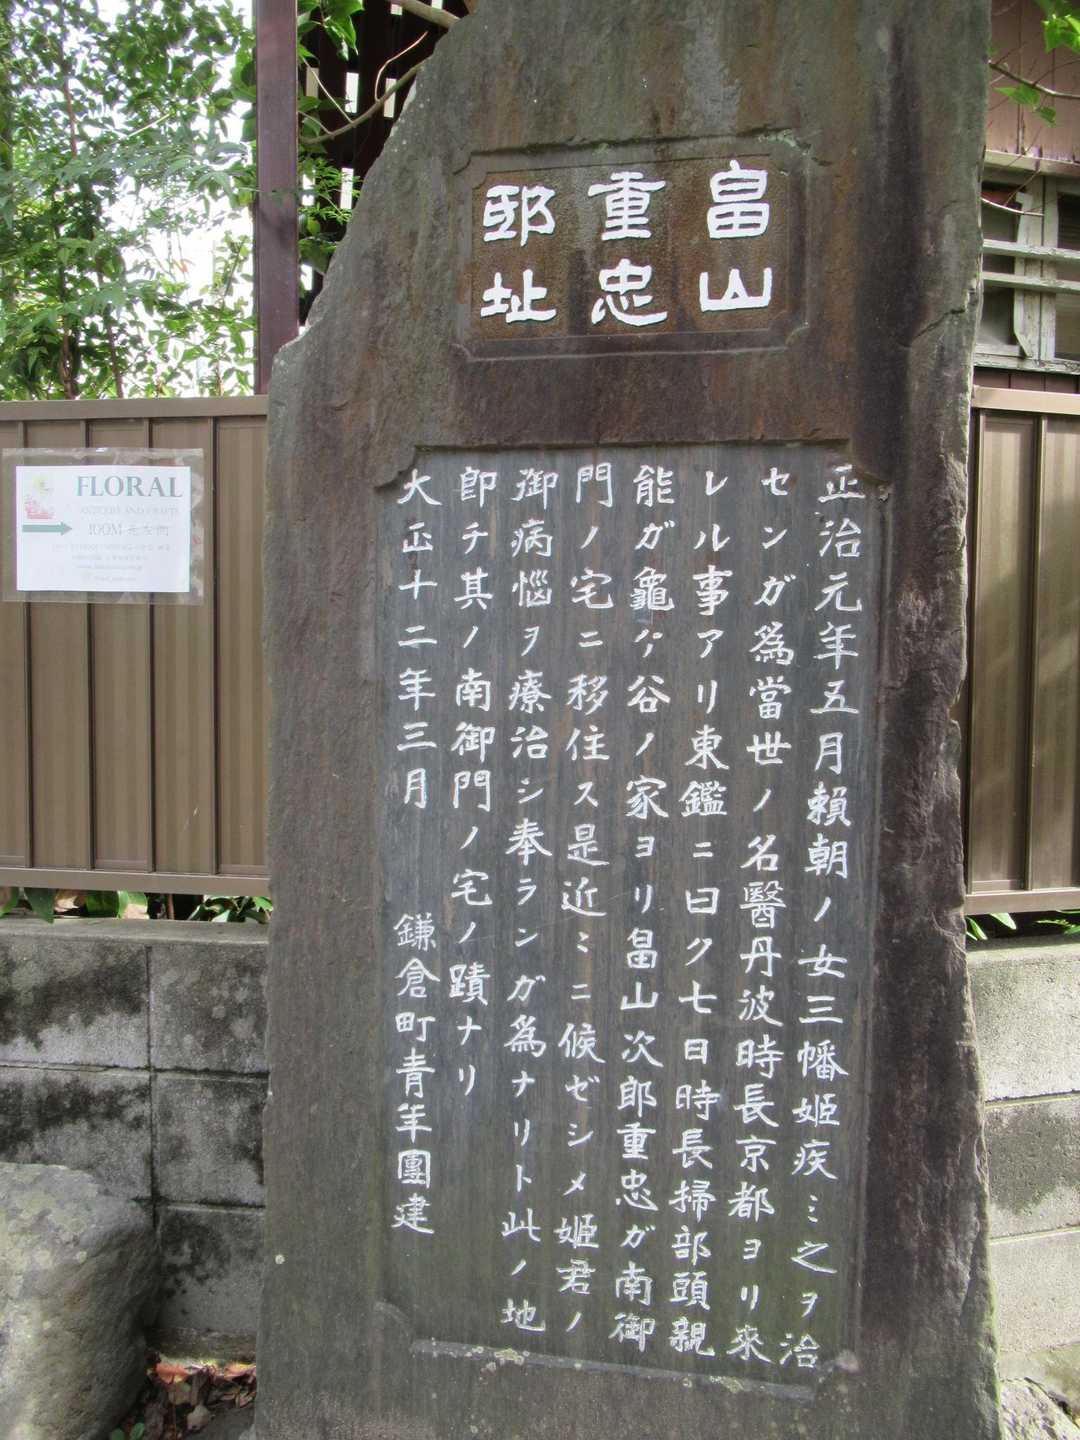 畠山
重忠
邸址
正治元年五月賴朝ノ女三幡姫疾ミ之ヲ治
センガ爲當世ノ名醫丹波時長京都ヨリ來
レル事アリ東鑑ニ曰ク七日時長掃部頭親
能ガ龜ケ谷ノ家ヨリ畠山次郎重忠ガ南御
門ノ宅ニ移住ス是近ミニ候ゼシメ姫君ノ
御病惱ヲ療治シ奉ランガ爲ナリト此ノ地
即チ其ノ南御門ノ宅ノ蹟ナリ
大正十二年三月 鎌倉町青年團建
FLORAL
100M